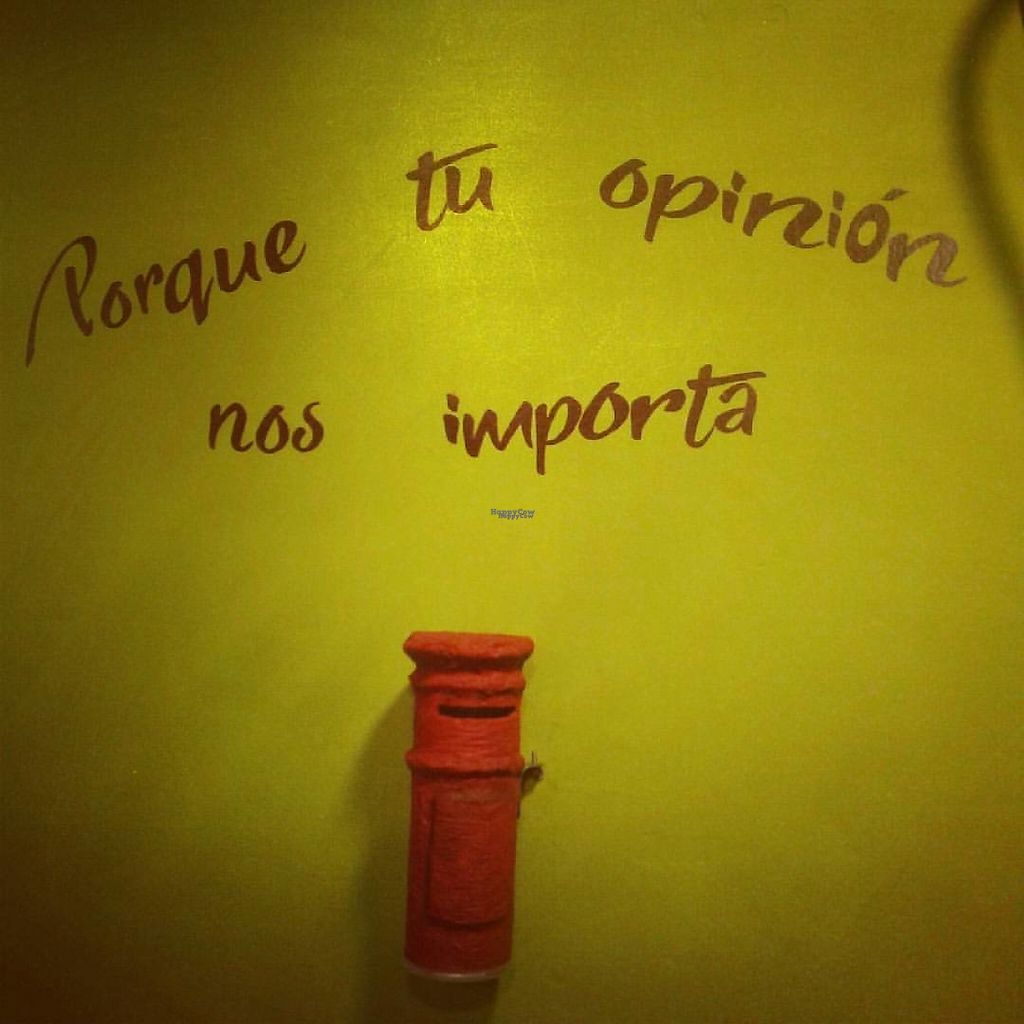 Porque tu opinión
nos importa
HappyCow
HappyCow